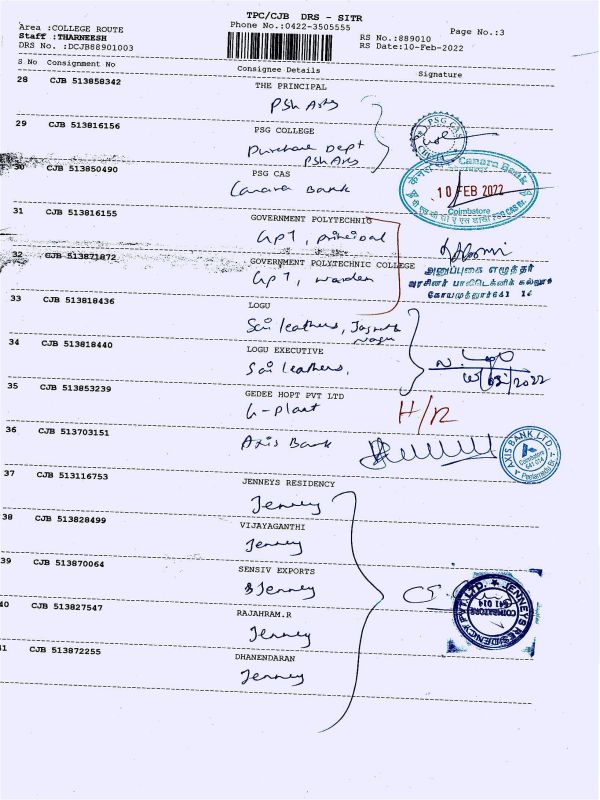 TPC/CJB DRS - SITR
Area :COLLEGE ROUTE
Phone No.:0422-3505555
Page No.:3
Staff : THARNEESH
RS No.:889010
DRS No. :DCJB88901003
RS Date:10-Feb-2022
S No Consignment No Consignee Details Signature
28 CJB 513858342 THE PRINCIPAL
PSG Arts
29 CJB 513816156 PSG COLLEGE
Purchase Dept
PSG Arts
PSG CAS
30 CJB 513850490 PSG CAS
Canara Bank
Canara Bank
10 FEB 2022
Coimbatore
31 CJB 513816155 GOVERNMENT POLYTECHNIC
GPT, principal
32 CJB 513871872 GOVERNMENT POLYTECHNIC COLLEGE
GPT, warden
அனுப்புகை எழுத்தர்
அரசினர் பாலிடெக்னிக் கல்லூரி
கோயமுத்தூர் 641 14
33 CJB 513818436 LOGU
Sai leathers, Jaganath
Nagar
34 CJB 513818440 LOGU EXECUTIVE
Sai leathers,
10/02/2022
35 CJB 513853239 GEDEE HOPT PVT LTD
G-plant
H/R
36 CJB 513703151 Axis Bank
AXIS BANK LTD.
Coimbatore
641 014
37 CJB 513116753 JENNEYS RESIDENCY
Jenney
38 CJB 513828499 VIJAYAGANTHI
Jenney
39 CJB 513870064 SENSIV EXPORTS
Jenney
JENNEYS RESIDENCY PVT. LTD.
COIMBATORE
641 014
40 CJB 513827547 RAJAHRAM.R
Jenney
41 CJB 513872255 DHANENDARAN
Jenney